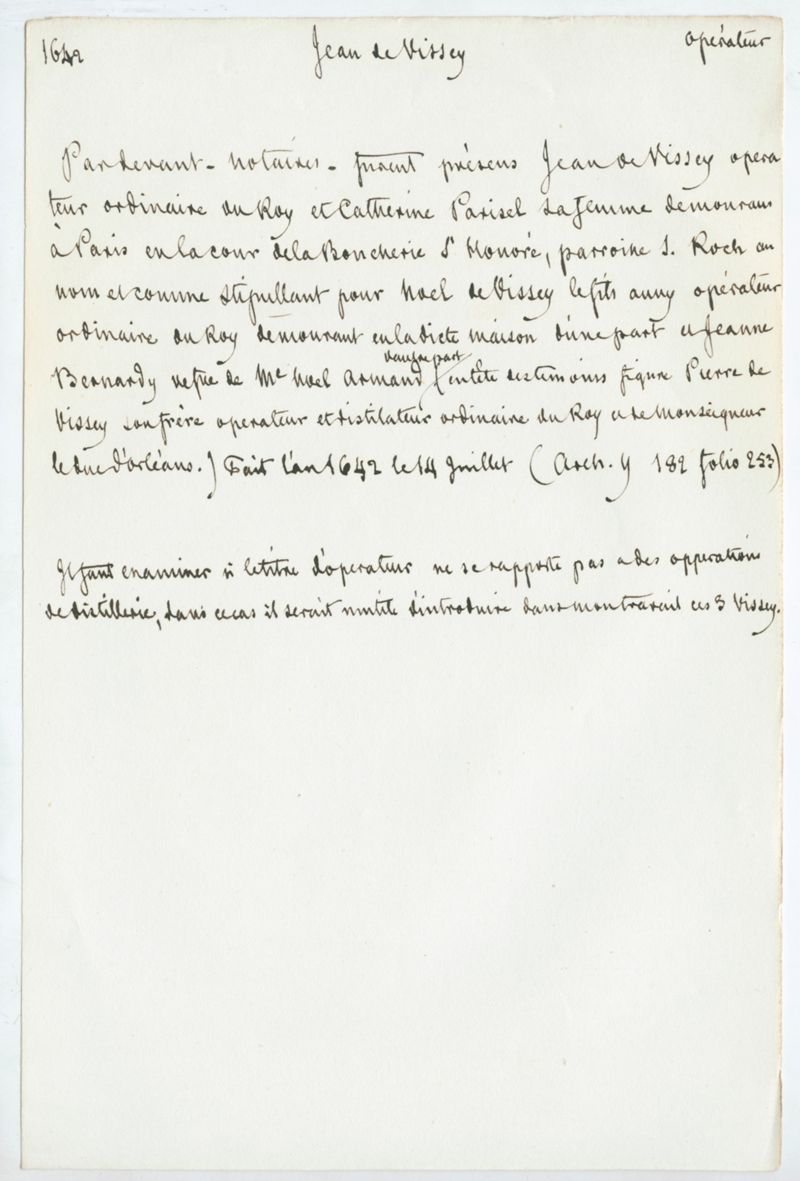 1642 Jean de Vissey opérateur
Par devant - notaires - furent présens Jean de Vissey opera
teur ordinaire du Roy et Catherine Parisel sa femme demourans
à Paris en la cour de la Boucherie St Honoré, parroisse S. Roch au
nom et comme stipullant pour Noel de Vissey le fils aussy opérateur
ordinaire du Roy demourant en la dicte maison d'une part et Jeanne
d'autre part
Bernardy vefve de Me Noel Armand (en tête des temoins figure Pierre de
Vissey son frère operateur et distilateur ordinaire du Roy et de Monseigneur
le duc d'orléans.) Fait l'an 1642 le 14 Juillet (Arch. Y 182 folio 253)
Il faut examiner si le titre d'operateur ne se rapporte pas a des opperations
de distillerie, dans ce cas il serait inutile d'introduire dans mon travail ces 3 Vissey.